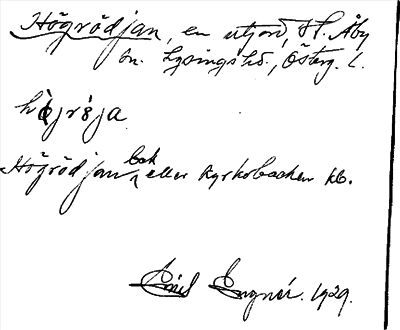 Högrödjan, en utjord, St. Åby
sn. Lysings hd., Österg. l.
hö̀jrø̀ja
Högrödjan bok eller Kyrkobacken kb.
Emil Engnér. 1929.